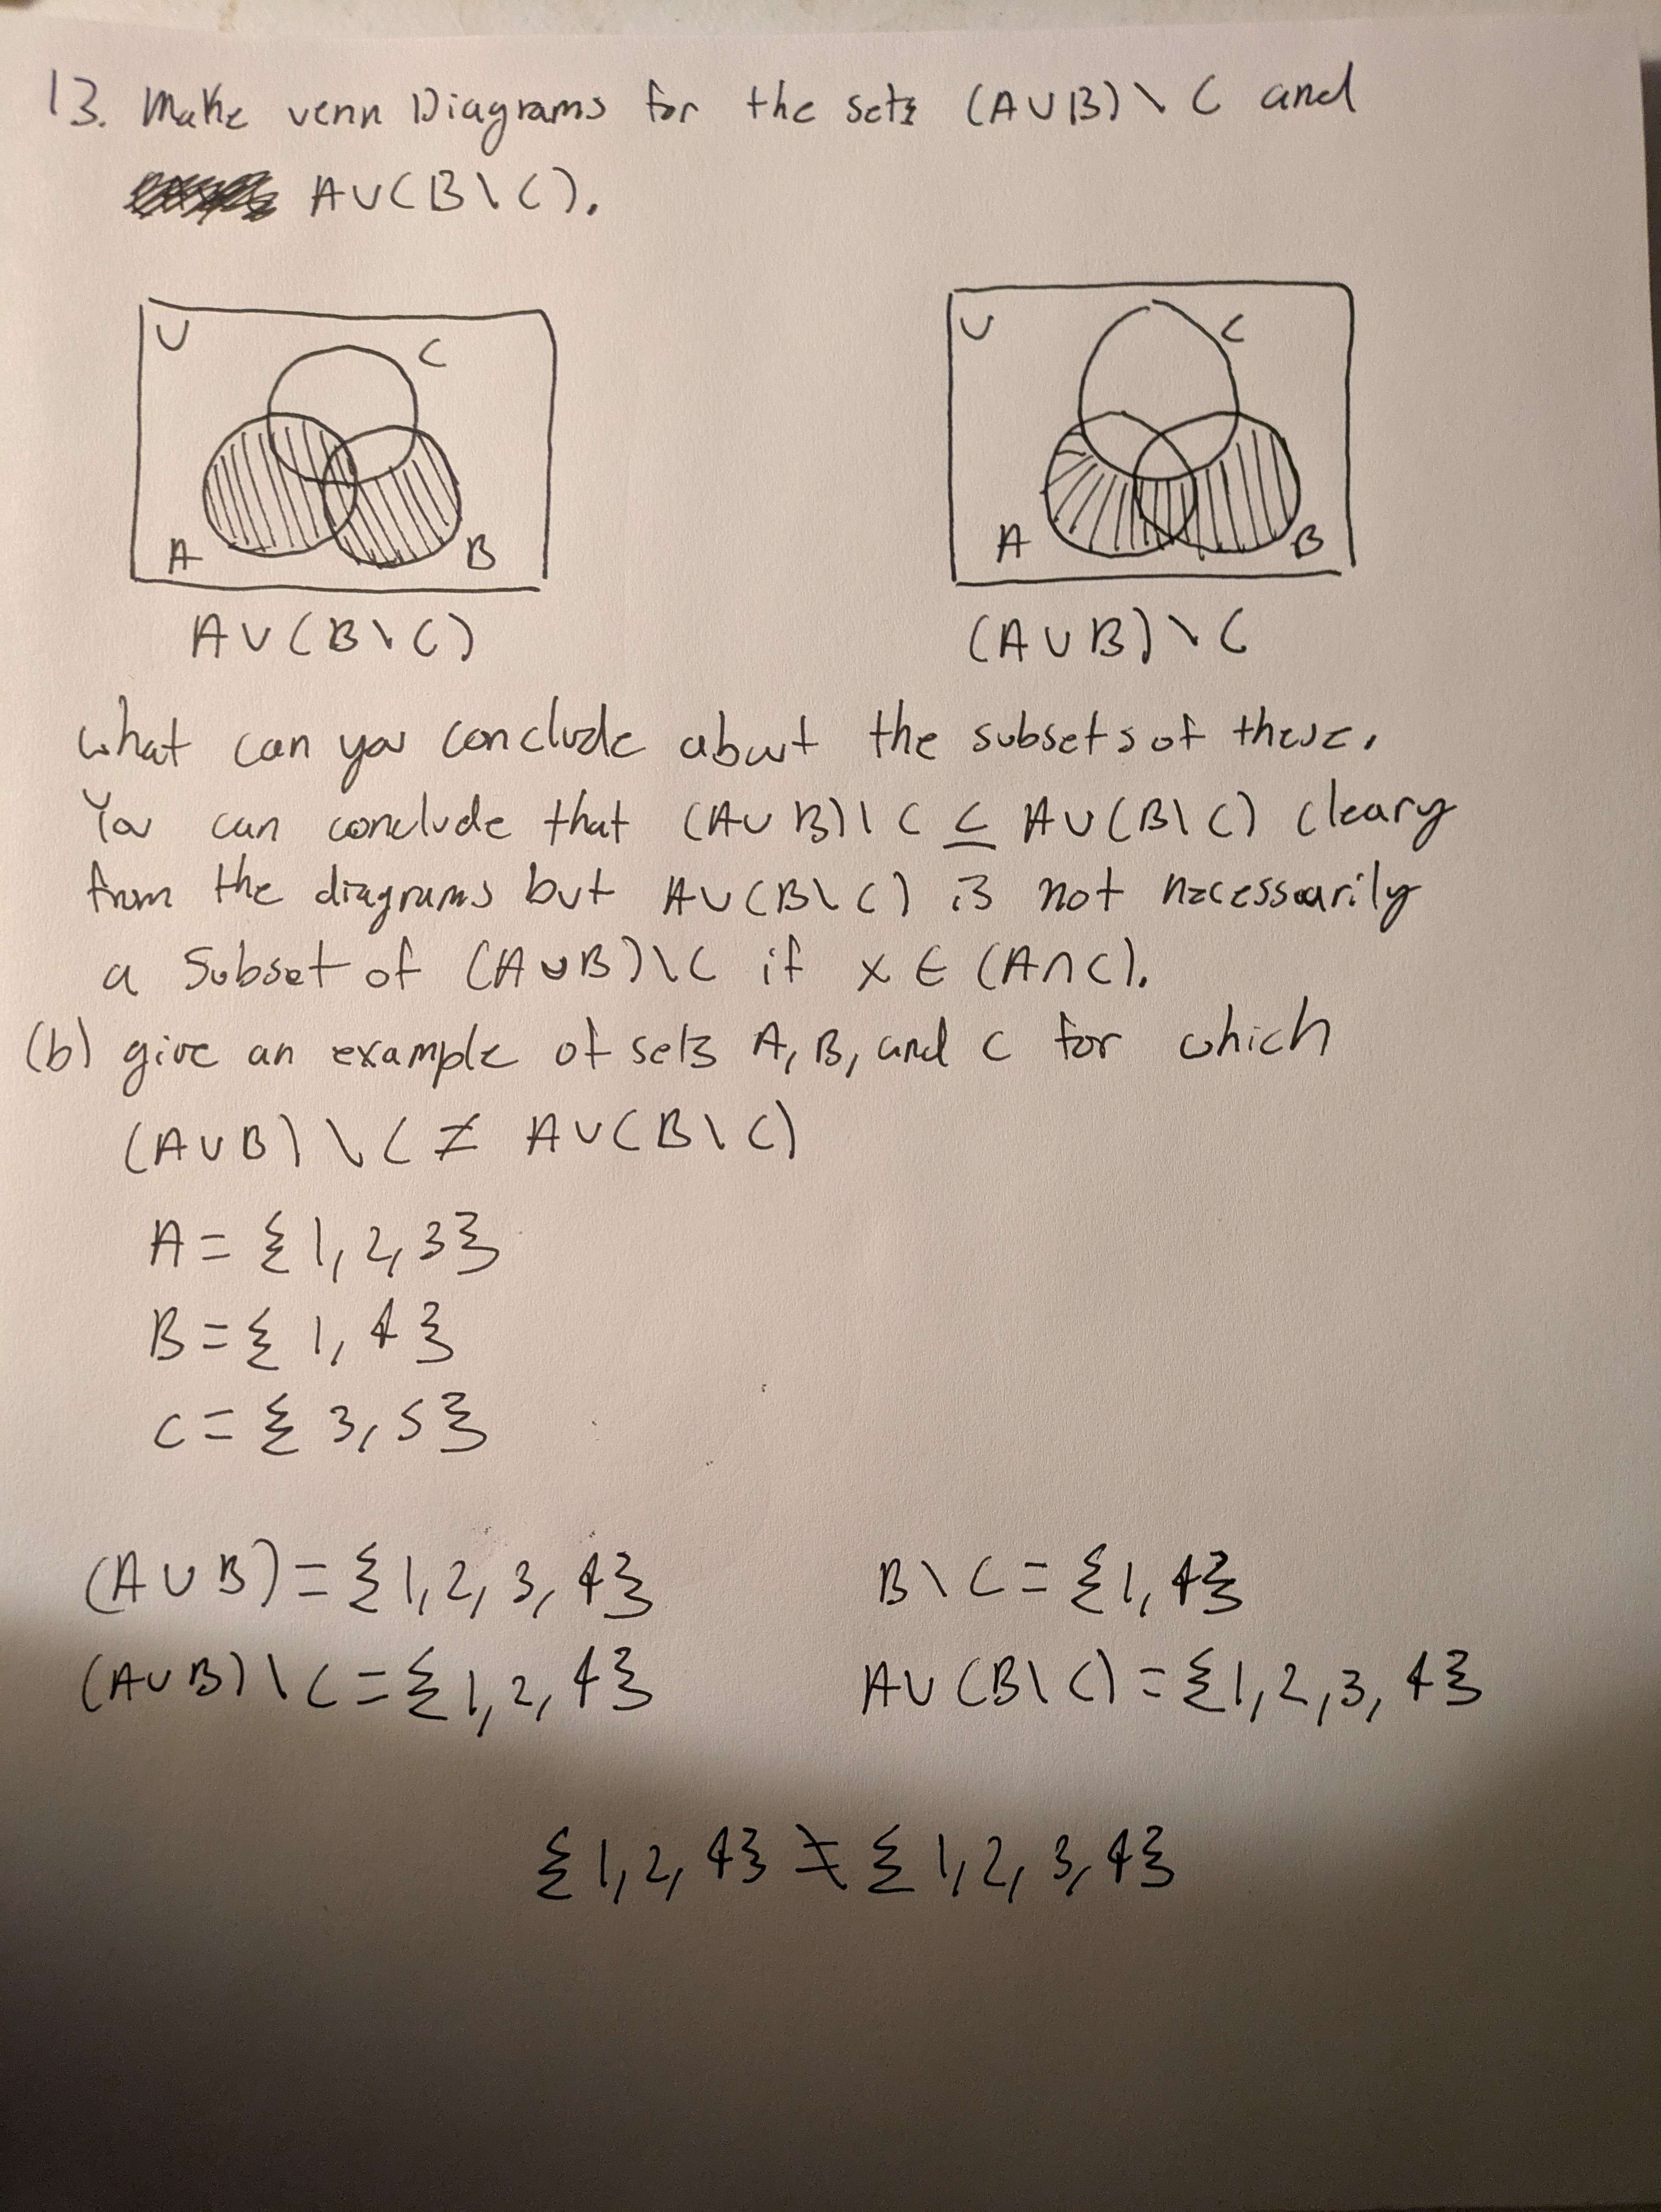 13. Make venn Diagrams for the sets (A∪B)\C and
A∪(B\C).
U
C
A
B
A∪(B\C)
U
C
A
B
(A∪B)\C
what can you conclude about the subsets of these.
You can conclude that (A∪B)\C ⊆ A∪(B\C) cleary
from the diagrams but A∪(B\C) is not necessarily
a subset of (A∪B)\C if x ∈ (A∩C).
(b) give an example of sets A, B, and C for which
(A∪B)\C ≠ A∪(B\C)
A = {1, 2, 3}
B = {1, 4}
C = {3, 5}
(A∪B) = {1, 2, 3, 4}
B\C = {1, 4}
(A∪B)\C = {1, 2, 4}
A∪(B\C) = {1, 2, 3, 4}
{1, 2, 4} ≠ {1, 2, 3, 4}